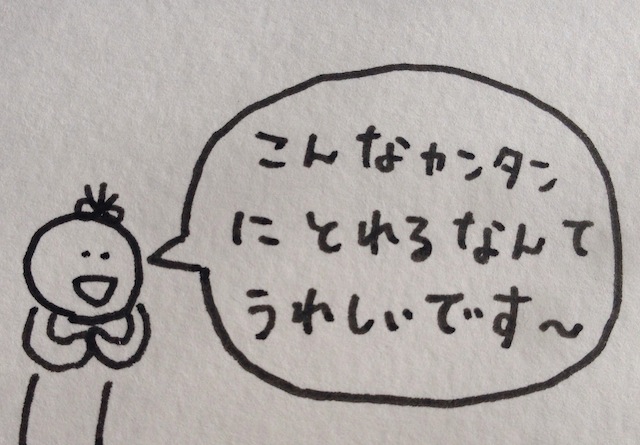 こんなカンタン
にとれるなんて
うれしいです～